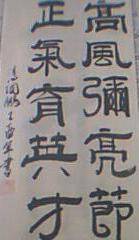 高風彌亮節
正氣育英才